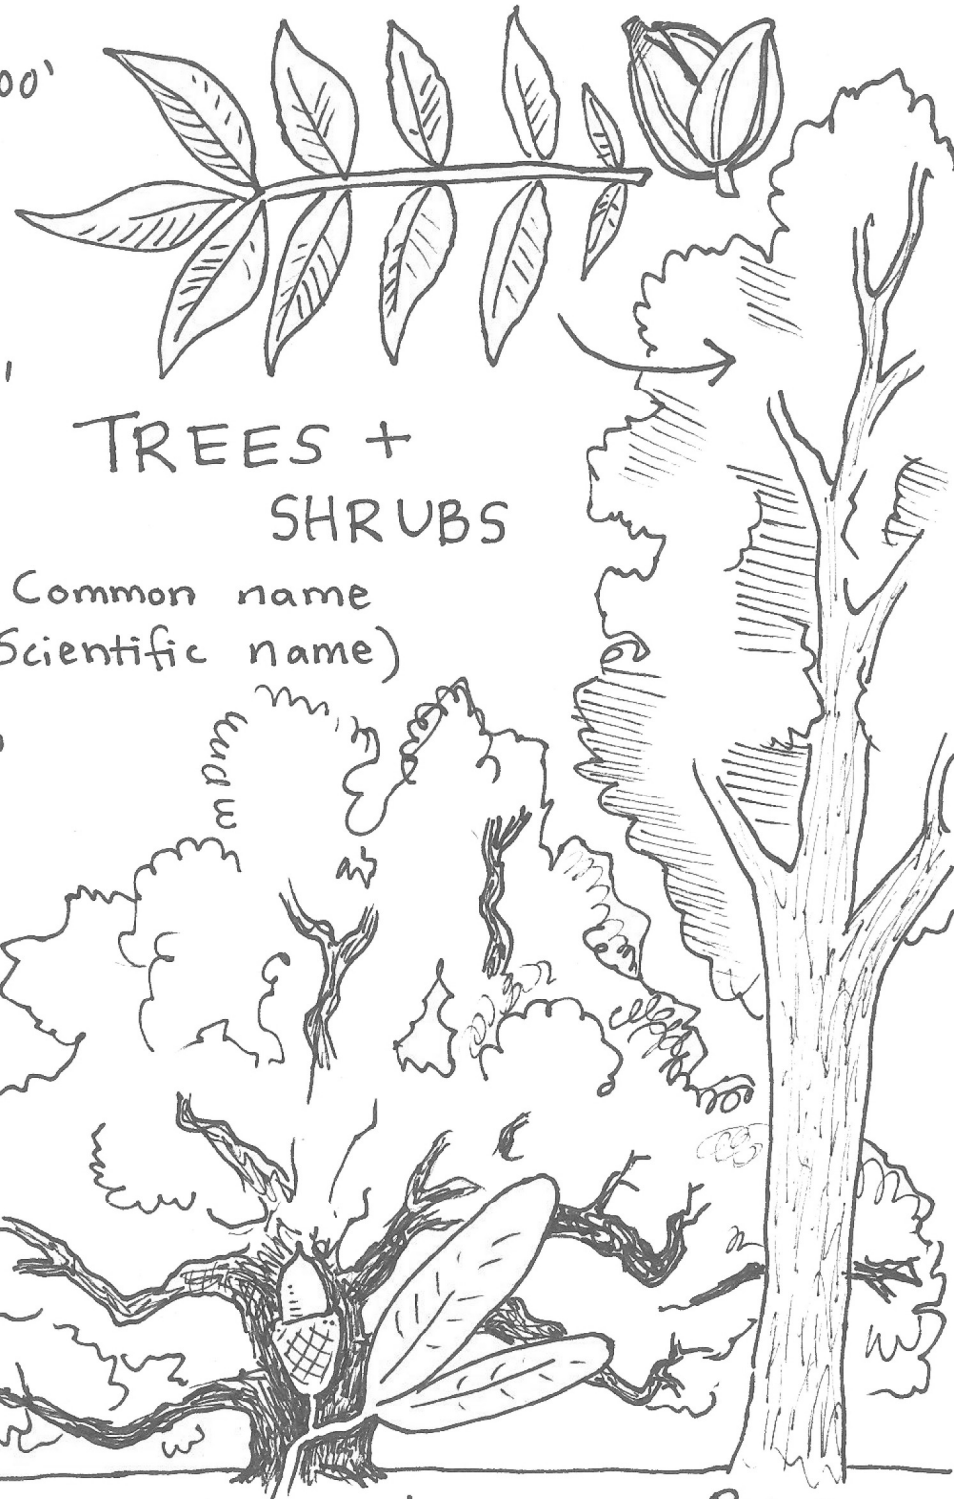 00'
TREES +
SHRUBS
Common name
Scientific name)